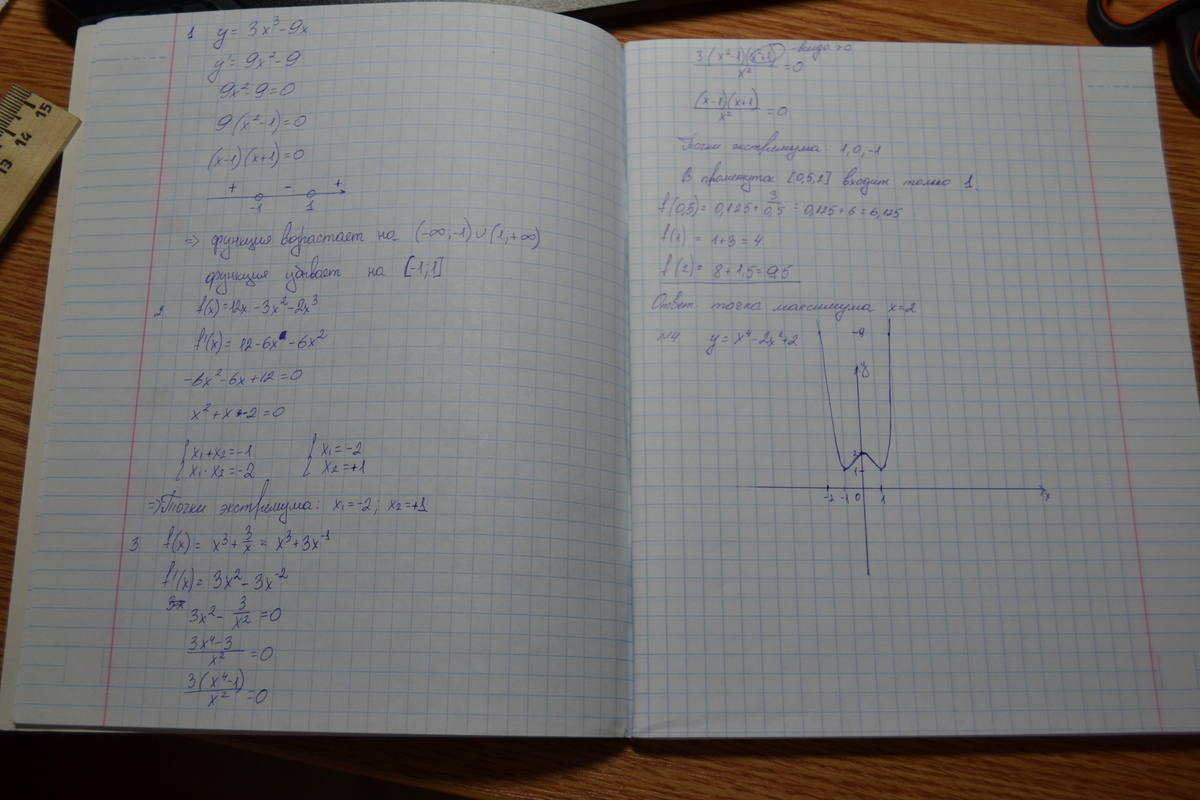 1 y = 3x³ - 9x
y' = 9x² - 9
9x² - 9 = 0
9(x² - 1) = 0
(x-1)(x+1) = 0
+ - +
-1 1
=> функция возрастает на (-∞;-1) ∪ (1,+∞)
функция убывает на [-1;1]
2. f(x) = 12x - 3x² - 2x³
f'(x) = 12 - 6x - 6x²
-6x² - 6x + 12 = 0
x² + x - 2 = 0
{ x₁ + x₂ = -1 { x₁ = -2
{ x₁ · x₂ = -2 { x₂ = +1
=> Точки экстремума: x₁ = -2; x₂ = +1
3. f(x) = x³ + 3/x = x³ + 3x⁻¹
f'(x) = 3x² - 3x⁻²
3x² - 3/x² = 0
(3x⁴ - 3)/x² = 0
3(x⁴ - 1)/x² = 0
3(x² - 1)(x² + 1)/x² = 0 - всегда > 0
(x-1)(x+1)/x² = 0
Точки экстремума: 1, 0, -1
В промежуток [0,5;2] входит только 1.
f(0,5) = 0,125 + 3/0,5 = 0,125 + 6 = 6,125
f(1) = 1 + 3 = 4
f(2) = 8 + 1,5 = 9,5
Ответ: точка максимума x = 2
№4 y = x⁴ - 2x² + 2
-9
y
2
1
-2 -1 0 1 x